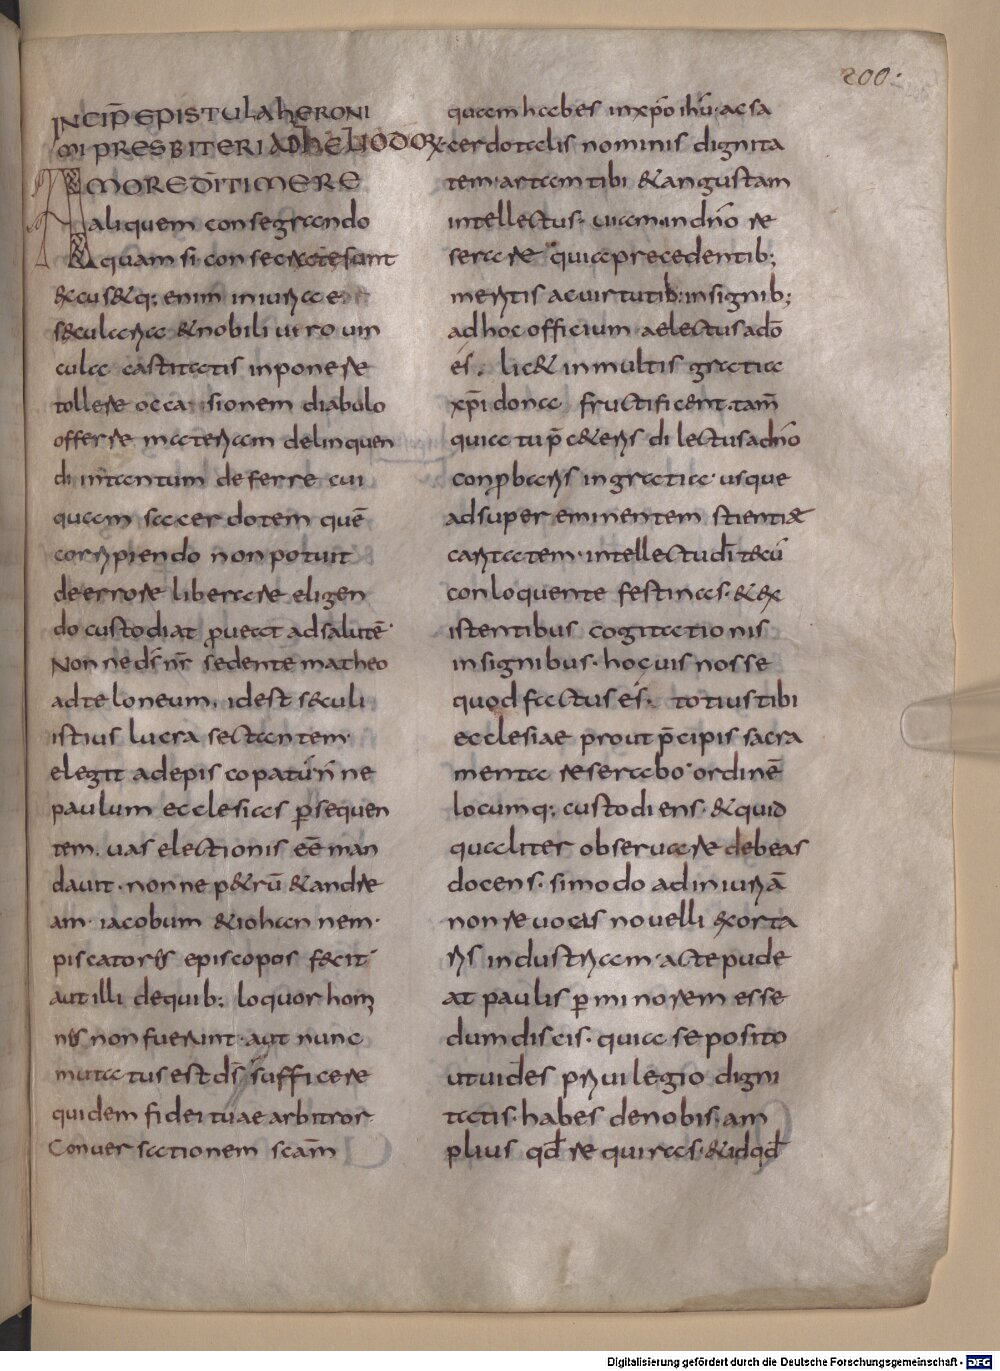 200.
INCIP̄ EPISTULA hERONI
MI PRESBITERI AD hELIODOR
AMORE DĪ TIMERE
aliquem consegrando
quam si consecrate sunt
& cus&q; enim iniuria e
s&cularia & nobili uiro uin
cula castitatis inponere
tollere occasionem diabulo
offerre materiam delinquen
di intentum deferre cui
quam sacerdotem quē
corripiendo non potuit
deerrore liberare eligen
do custodiat ꝓueat ad salutē
Nonne ds̄ nr̄ sedente matheo
adteloneum. id est s&culi
istius lucra sectantem
elegit adepiscopatū nne
paulum ecclesias ꝑsequen
tem. uas electionis eē man
dauit. nonne p&rū & andre
am. iacobum & iohannem.
piscatores episcopos fecit
aut illi dequib; loquor homi
nes non fuerunt. aut nunc
mutatus est ds̄ sufficere
quidem fidei tuae arbitror
Conuersationem scām
quam habes in xp̄o ih̄u. ac sa
cerdotalis nominis dignita
tem. artam tibi & angustam
intellectus. uiam in dn̄o re
serare quia precedentib;
meritis ac uirtutib; insignib;
ad hoc officium aelectus adō
és. lic& in multis gratia
xp̄i dona fructificent. tam̄
quia tu p̄ c&eris dilectus a dn̄o
conꝓbaris in gratia. usque
ad supereminentem scientiae
caritatem. intellectu dī tecū
conloquente festinas. & &x
istentibus cogitationis
insignibus. hoc uis nosse
quod factus és. totius tibi
ecclesiae prout p̄cipis sacra
menta reserabo. ordinē
locumq; custodiens. & quid
qualiter obseruare debeas
docens. si modo ad iniuriā
non reuocas nouelli &xorta
ris industriam. acte pude
at paulisper minorem esse
dum discis. quia seposito
ut uides priuilegio digni
tatis. habes de nobis. am
plius qd̄ requiras. & id qd̄
Digitalisierung gefördert durch die Deutsche Forschungsgemeinschaft - DFG